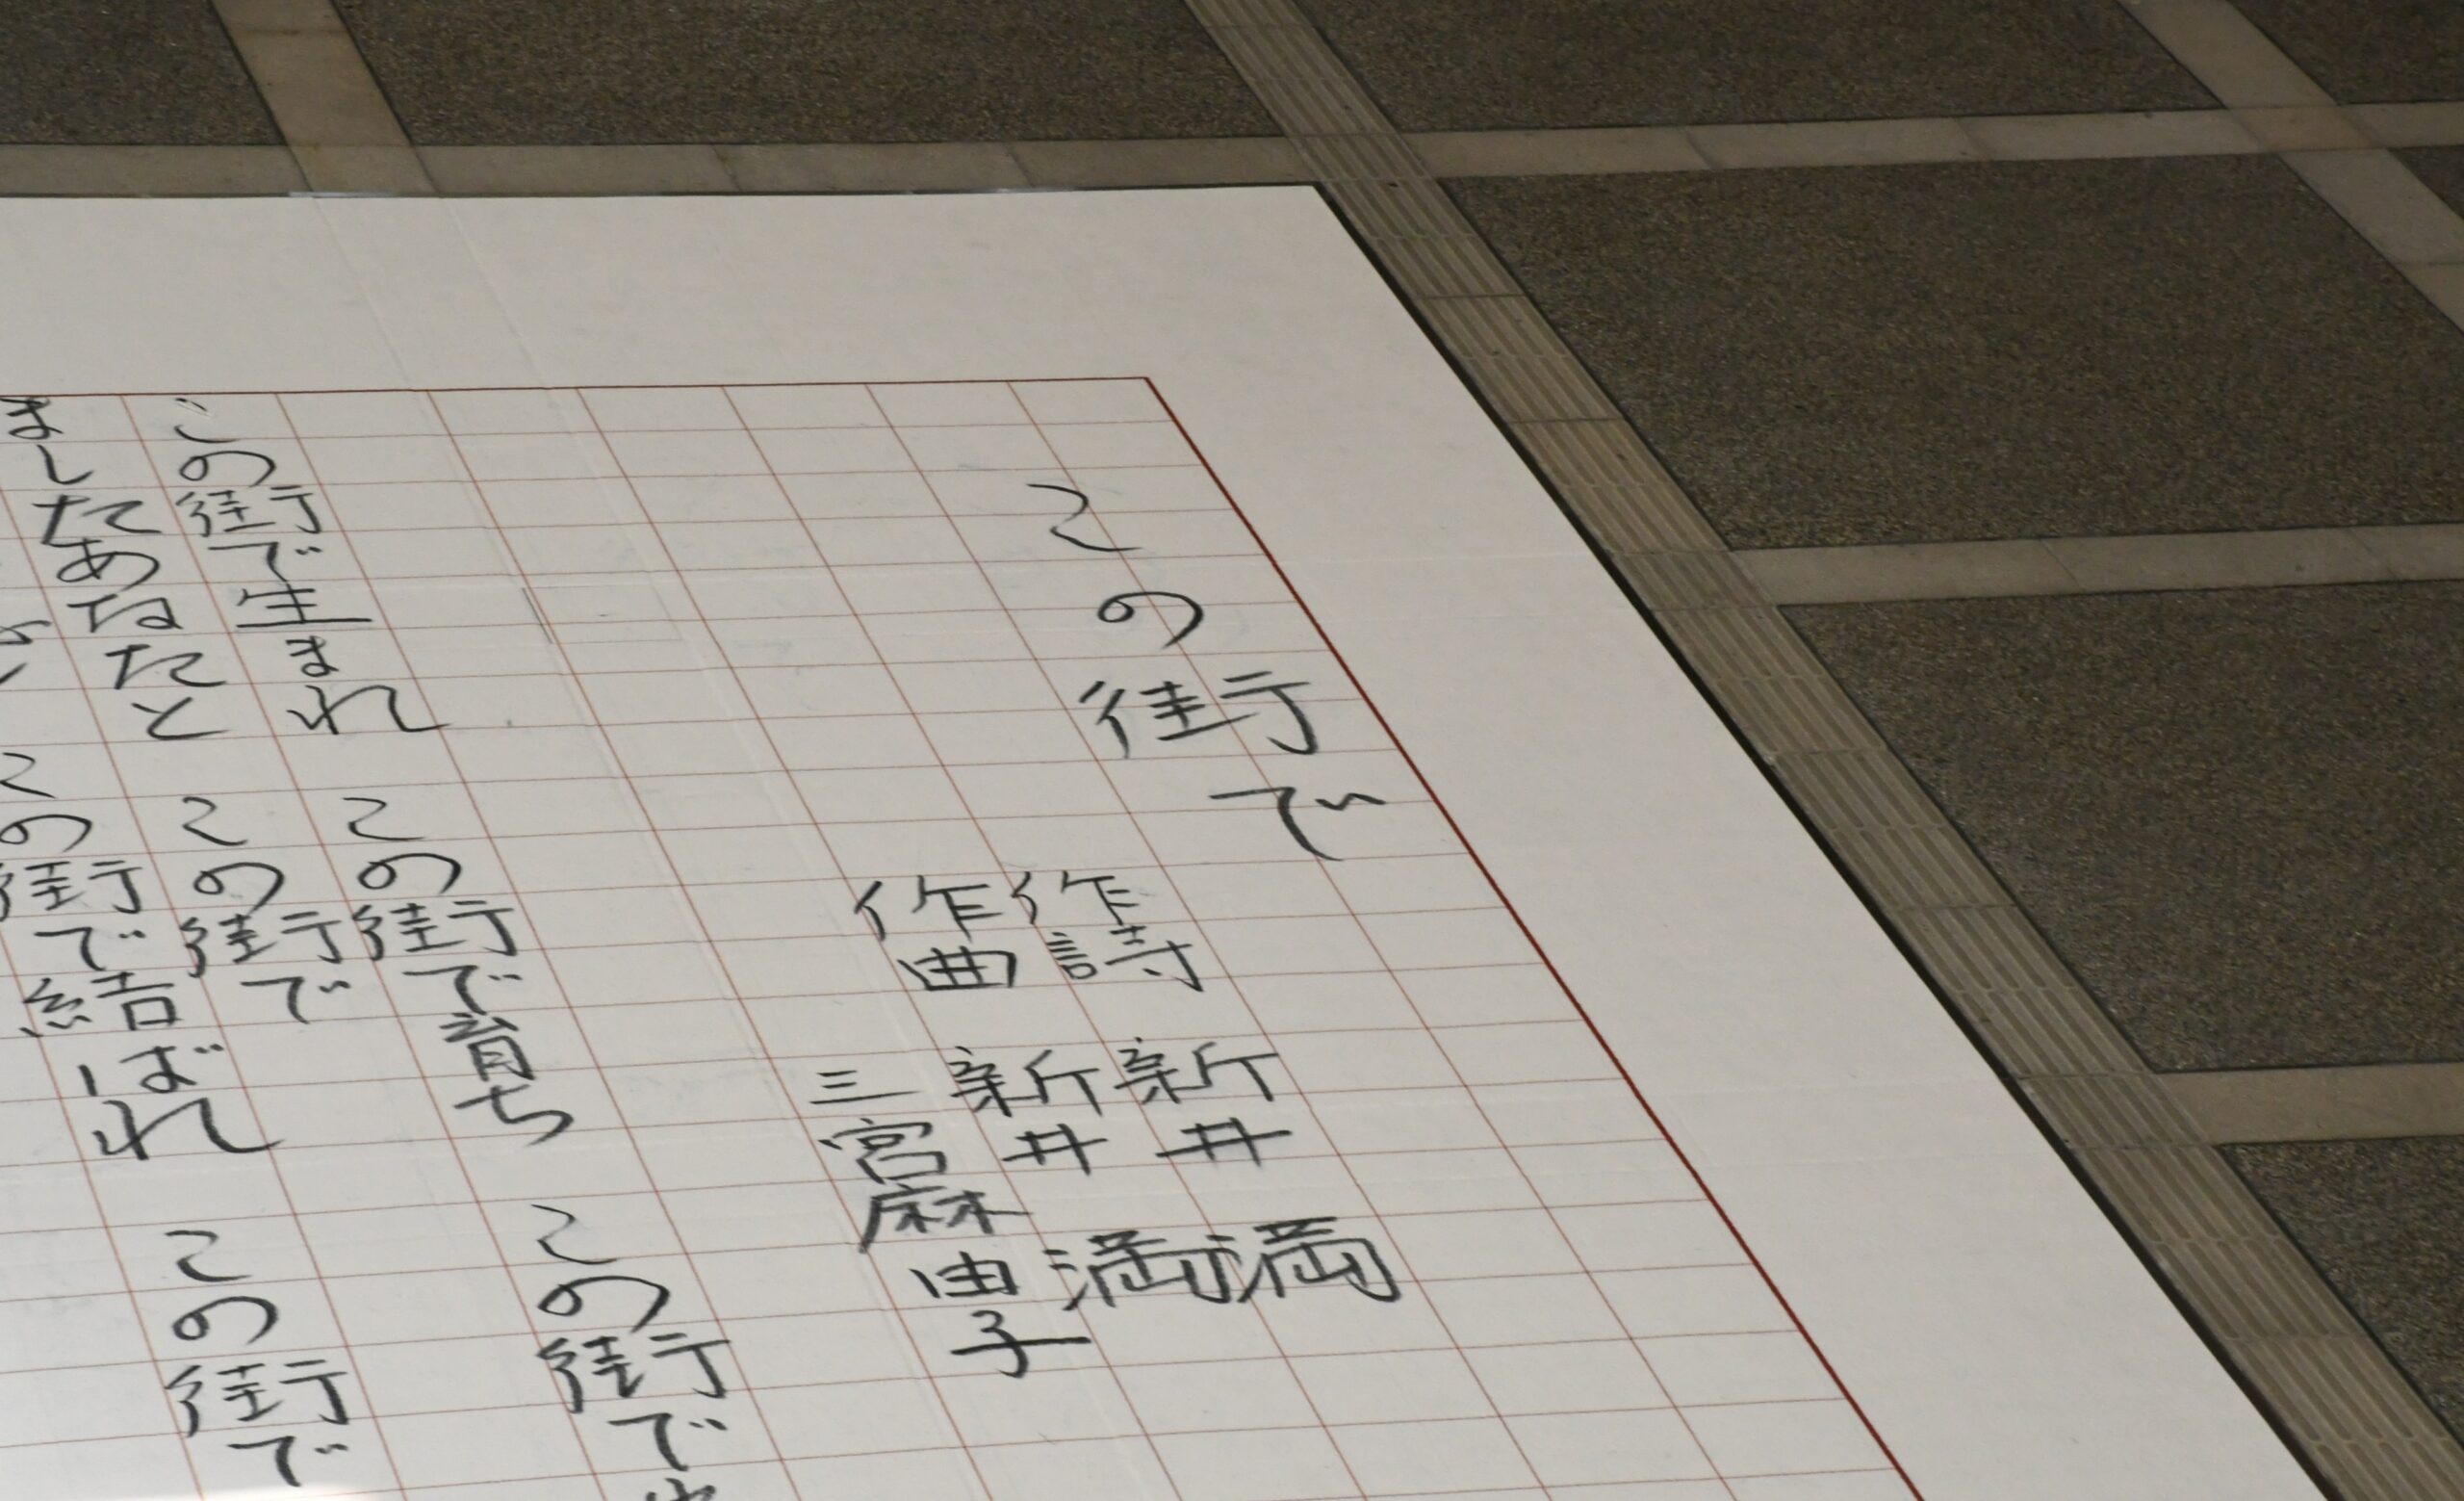 この街で
作詩 新井 満
作曲 新井 満
三宮麻由子
この街で生まれ この街で育ち この街で
ましたあなたと この街で
この街で結ばれ この街で